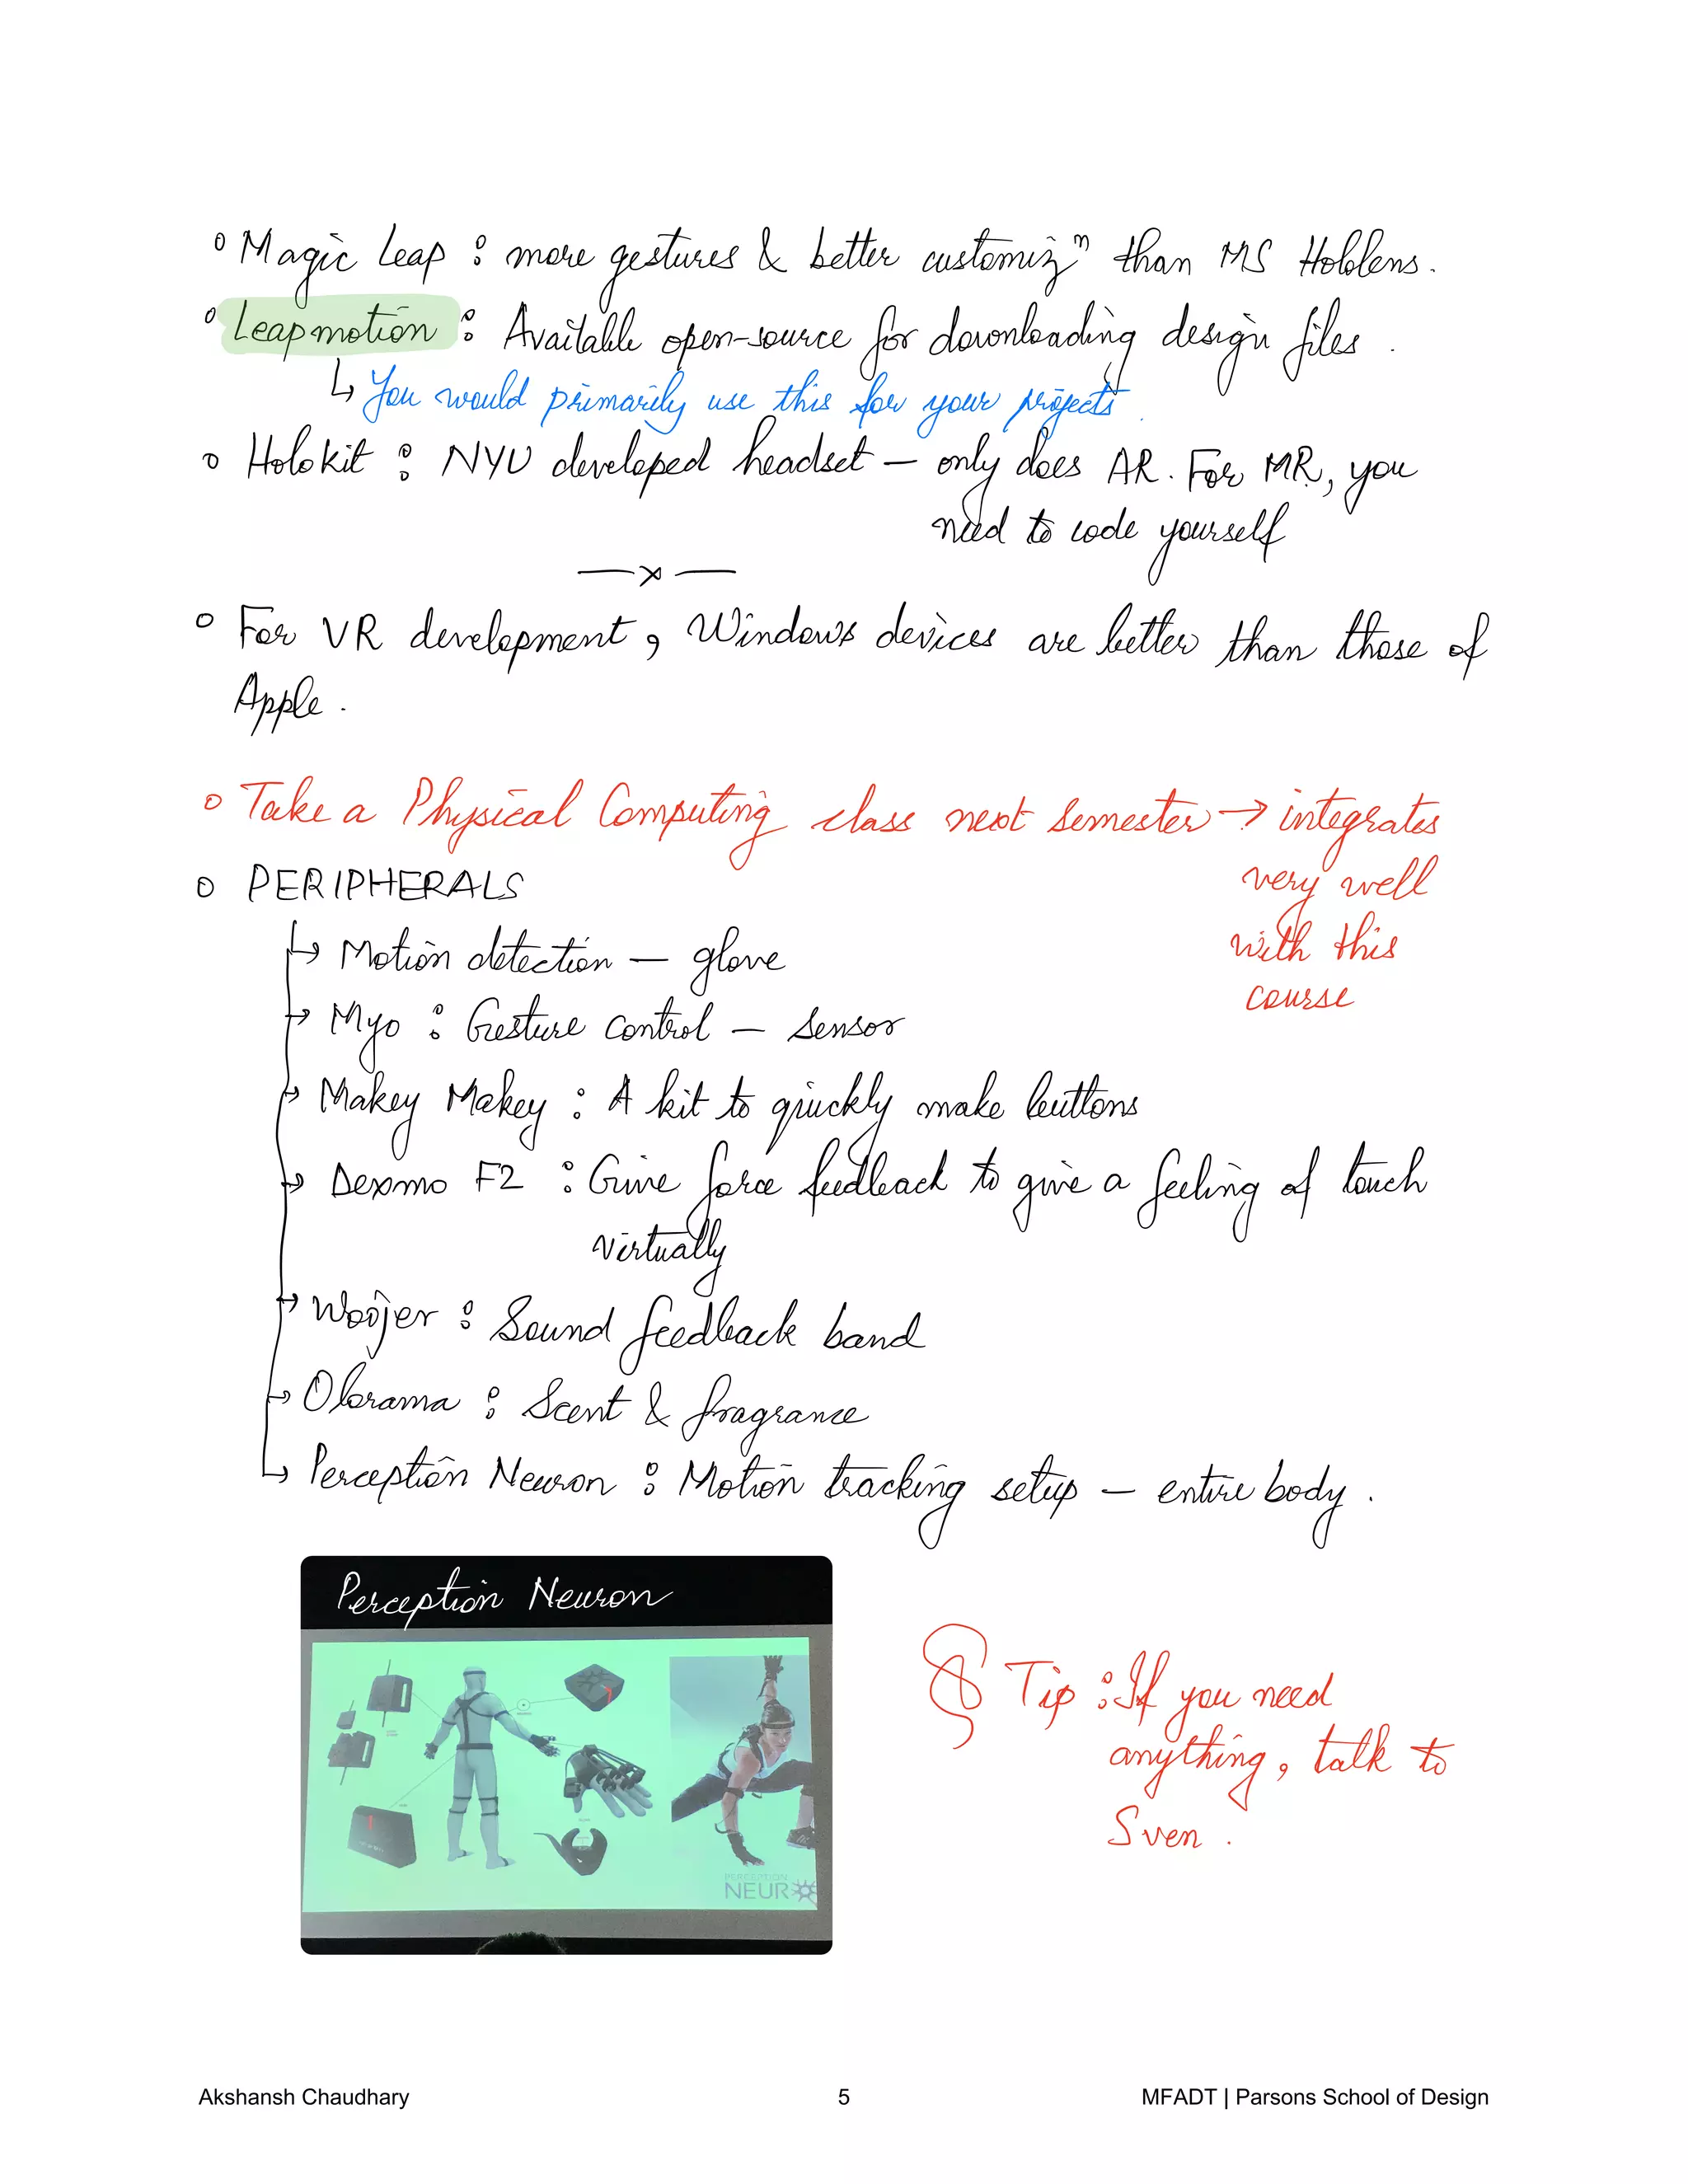 Magic Leap : more gestures & better customizⁿ than MS Hololens.
Leapmotion : Available open-source for downloading design files.
↳ You would primarily use this for your projects.
Holokit : NYU developed headset – only does AR. For MR, you
need to code yourself
—x—
For VR development, Windows devices are better than those of
Apple.
Take a Physical Computing class next semester → integrates
very well
with this
course
PERIPHERALS
↳ Motion detection – glove
↳ Myo : Gesture control – sensor
↳ Makey Makey : A kit to quickly make buttons
↳ Dexmo F2 : Give force feedback to give a feeling of touch
virtually
↳ Woojer : Sound feedback band
↳ Olorama : Scent & fragrance
↳ Perception Neuron : Motion tracking setup – entire body.
Perception Neuron
PERCEPTION
NEURON
Tip : If you need
anything, talk to
Sven.
Akshansh Chaudhary
5
MFADT | Parsons School of Design